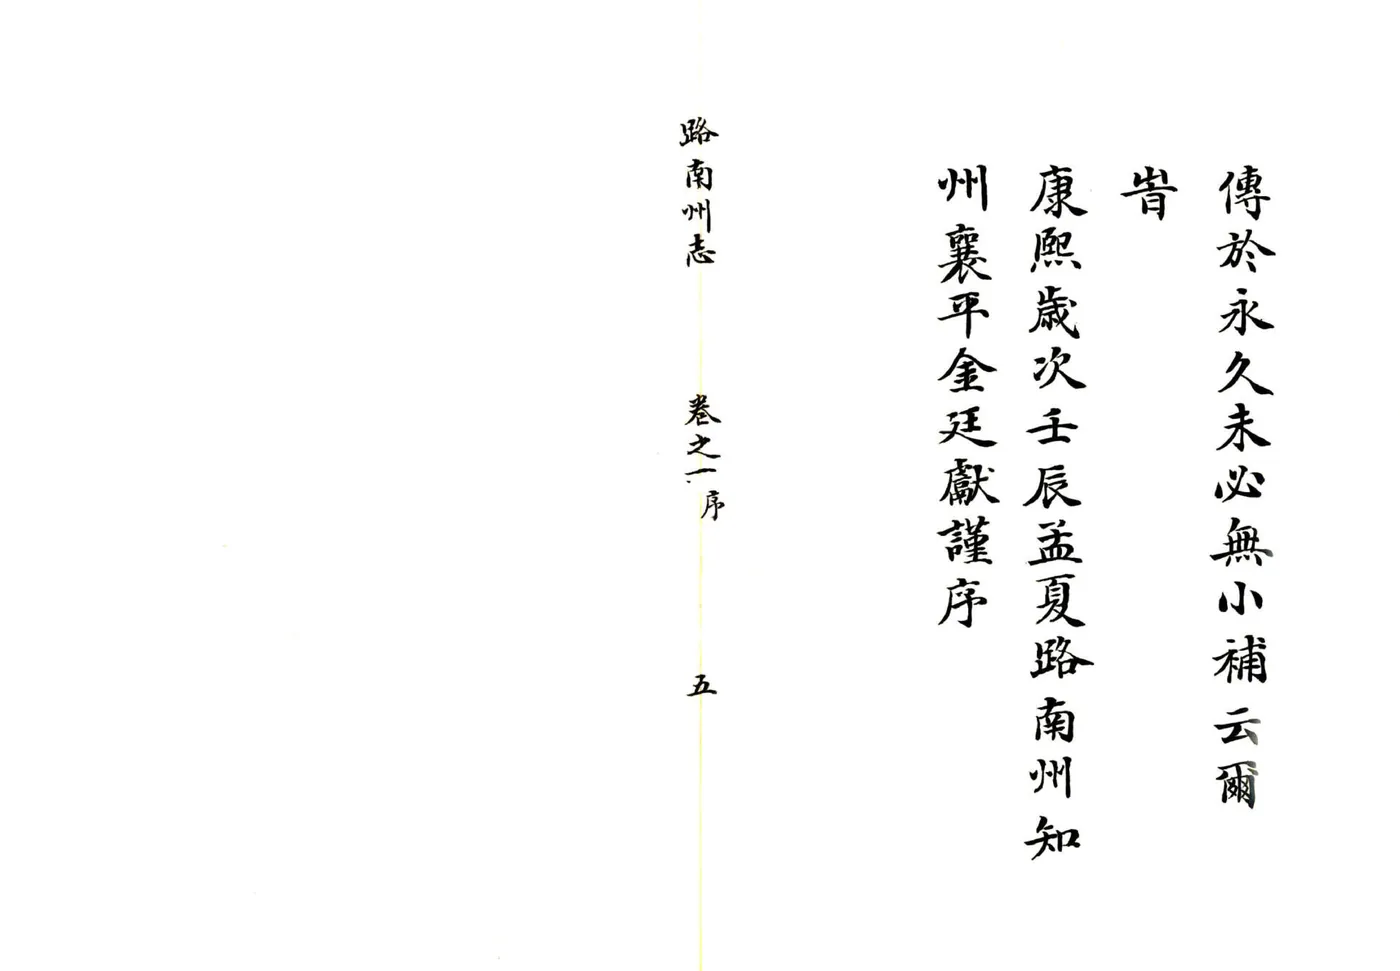 傳於永久未必無小補云爾
旹
康熙歲次壬辰孟夏路南州知
州襄平金廷獻謹序
路南州志
卷之一
序
五